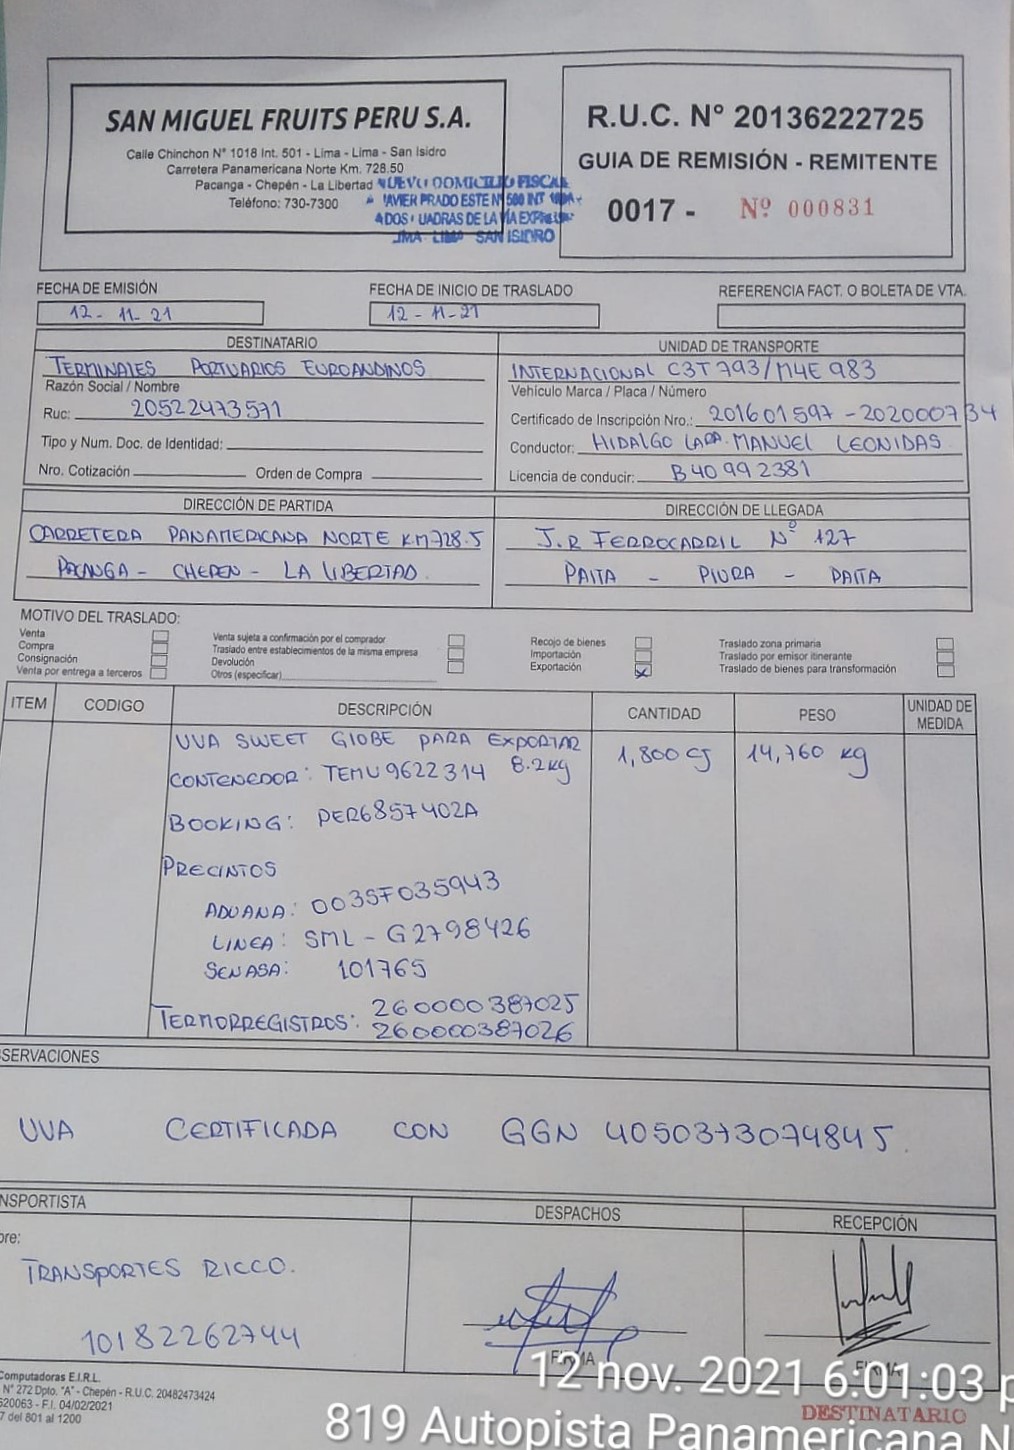 SAN MIGUEL FRUITS PERU S.A.
Calle Chinchon N° 1018 Int. 501 - Lima - Lima - San Isidro
Carretera Panamericana Norte Km. 728.50
Pacanga - Chepén - La Libertad
Teléfono: 730-7300
NUEVO DOMICILIO FISCAL
JAVIER PRADO ESTE N° 500 INT
ADOS CUADRAS DE LA VIA
LIMA LIMA SAN ISIDRO
R.U.C. N° 20136222725
GUIA DE REMISIÓN - REMITENTE
0017 - Nº 000831
FECHA DE EMISIÓN
12 - 11 - 21
FECHA DE INICIO DE TRASLADO
12 - 11 - 21
REFERENCIA FACT. O BOLETA DE VTA.
DESTINATARIO
TERMINALES PORTUARIOS EUROANDINOS
Razón Social / Nombre
Ruc: 20522473571
Tipo y Num. Doc. de Identidad:
Nro. Cotización Orden de Compra
UNIDAD DE TRANSPORTE
INTERNACIONAL C3T 793/M4E 983
Vehículo Marca / Placa / Número
Certificado de Inscripción Nro.: 201601597 - 202000734
Conductor: HIDALGO LARA MANUEL LEONIDAS
Licencia de conducir: B40992381
DIRECCIÓN DE PARTIDA
CARRETERA PANAMERICANA NORTE KM728.5
PACANGA - CHEPEN - LA LIBERTAD
DIRECCIÓN DE LLEGADA
J.R FERROCARRIL Nº 127
PAITA - PIURA - PAITA
MOTIVO DEL TRASLADO:
Venta
Compra
Consignación
Venta por entrega a terceros
Venta sujeta a confirmación por el comprador
Traslado entre establecimientos de la misma empresa
Devolución
Otros (especificar)
Recojo de bienes
Importación
Exportación X
Traslado zona primaria
Traslado por emisor itinerante
Traslado de bienes para transformación
ITEM CODIGO DESCRIPCIÓN CANTIDAD PESO UNIDAD DE MEDIDA
UVA SWEET GLOBE PARA EXPORTAR 1,800 CJ 14,760 kg
CONTENEDOR: TEMU9622314 8.2kg
BOOKING: PER6857402A
PRECINTOS
ADUANA: 0035F035943
LINEA: SML - G2798426
SENASA: 101765
TERMORREGISTROS: 260000387025
260000387026
SERVACIONES
UVA CERTIFICADA CON GGN 4050373074845.
NSPORTISTA
bre:
TRANSPORTES RICCO.
10182262744
DESPACHOS
FIRMA
RECEPCIÓN
FIRMA
Computadoras E.I.R.L.
N° 272 Dpto. "A" - Chepén - R.U.C. 20482473424
620063 - F.I. 04/02/2021
7 del 801 al 1200
DESTINATARIO
12 nov. 2021 6:01:03 p
819 Autopista Panamericana N